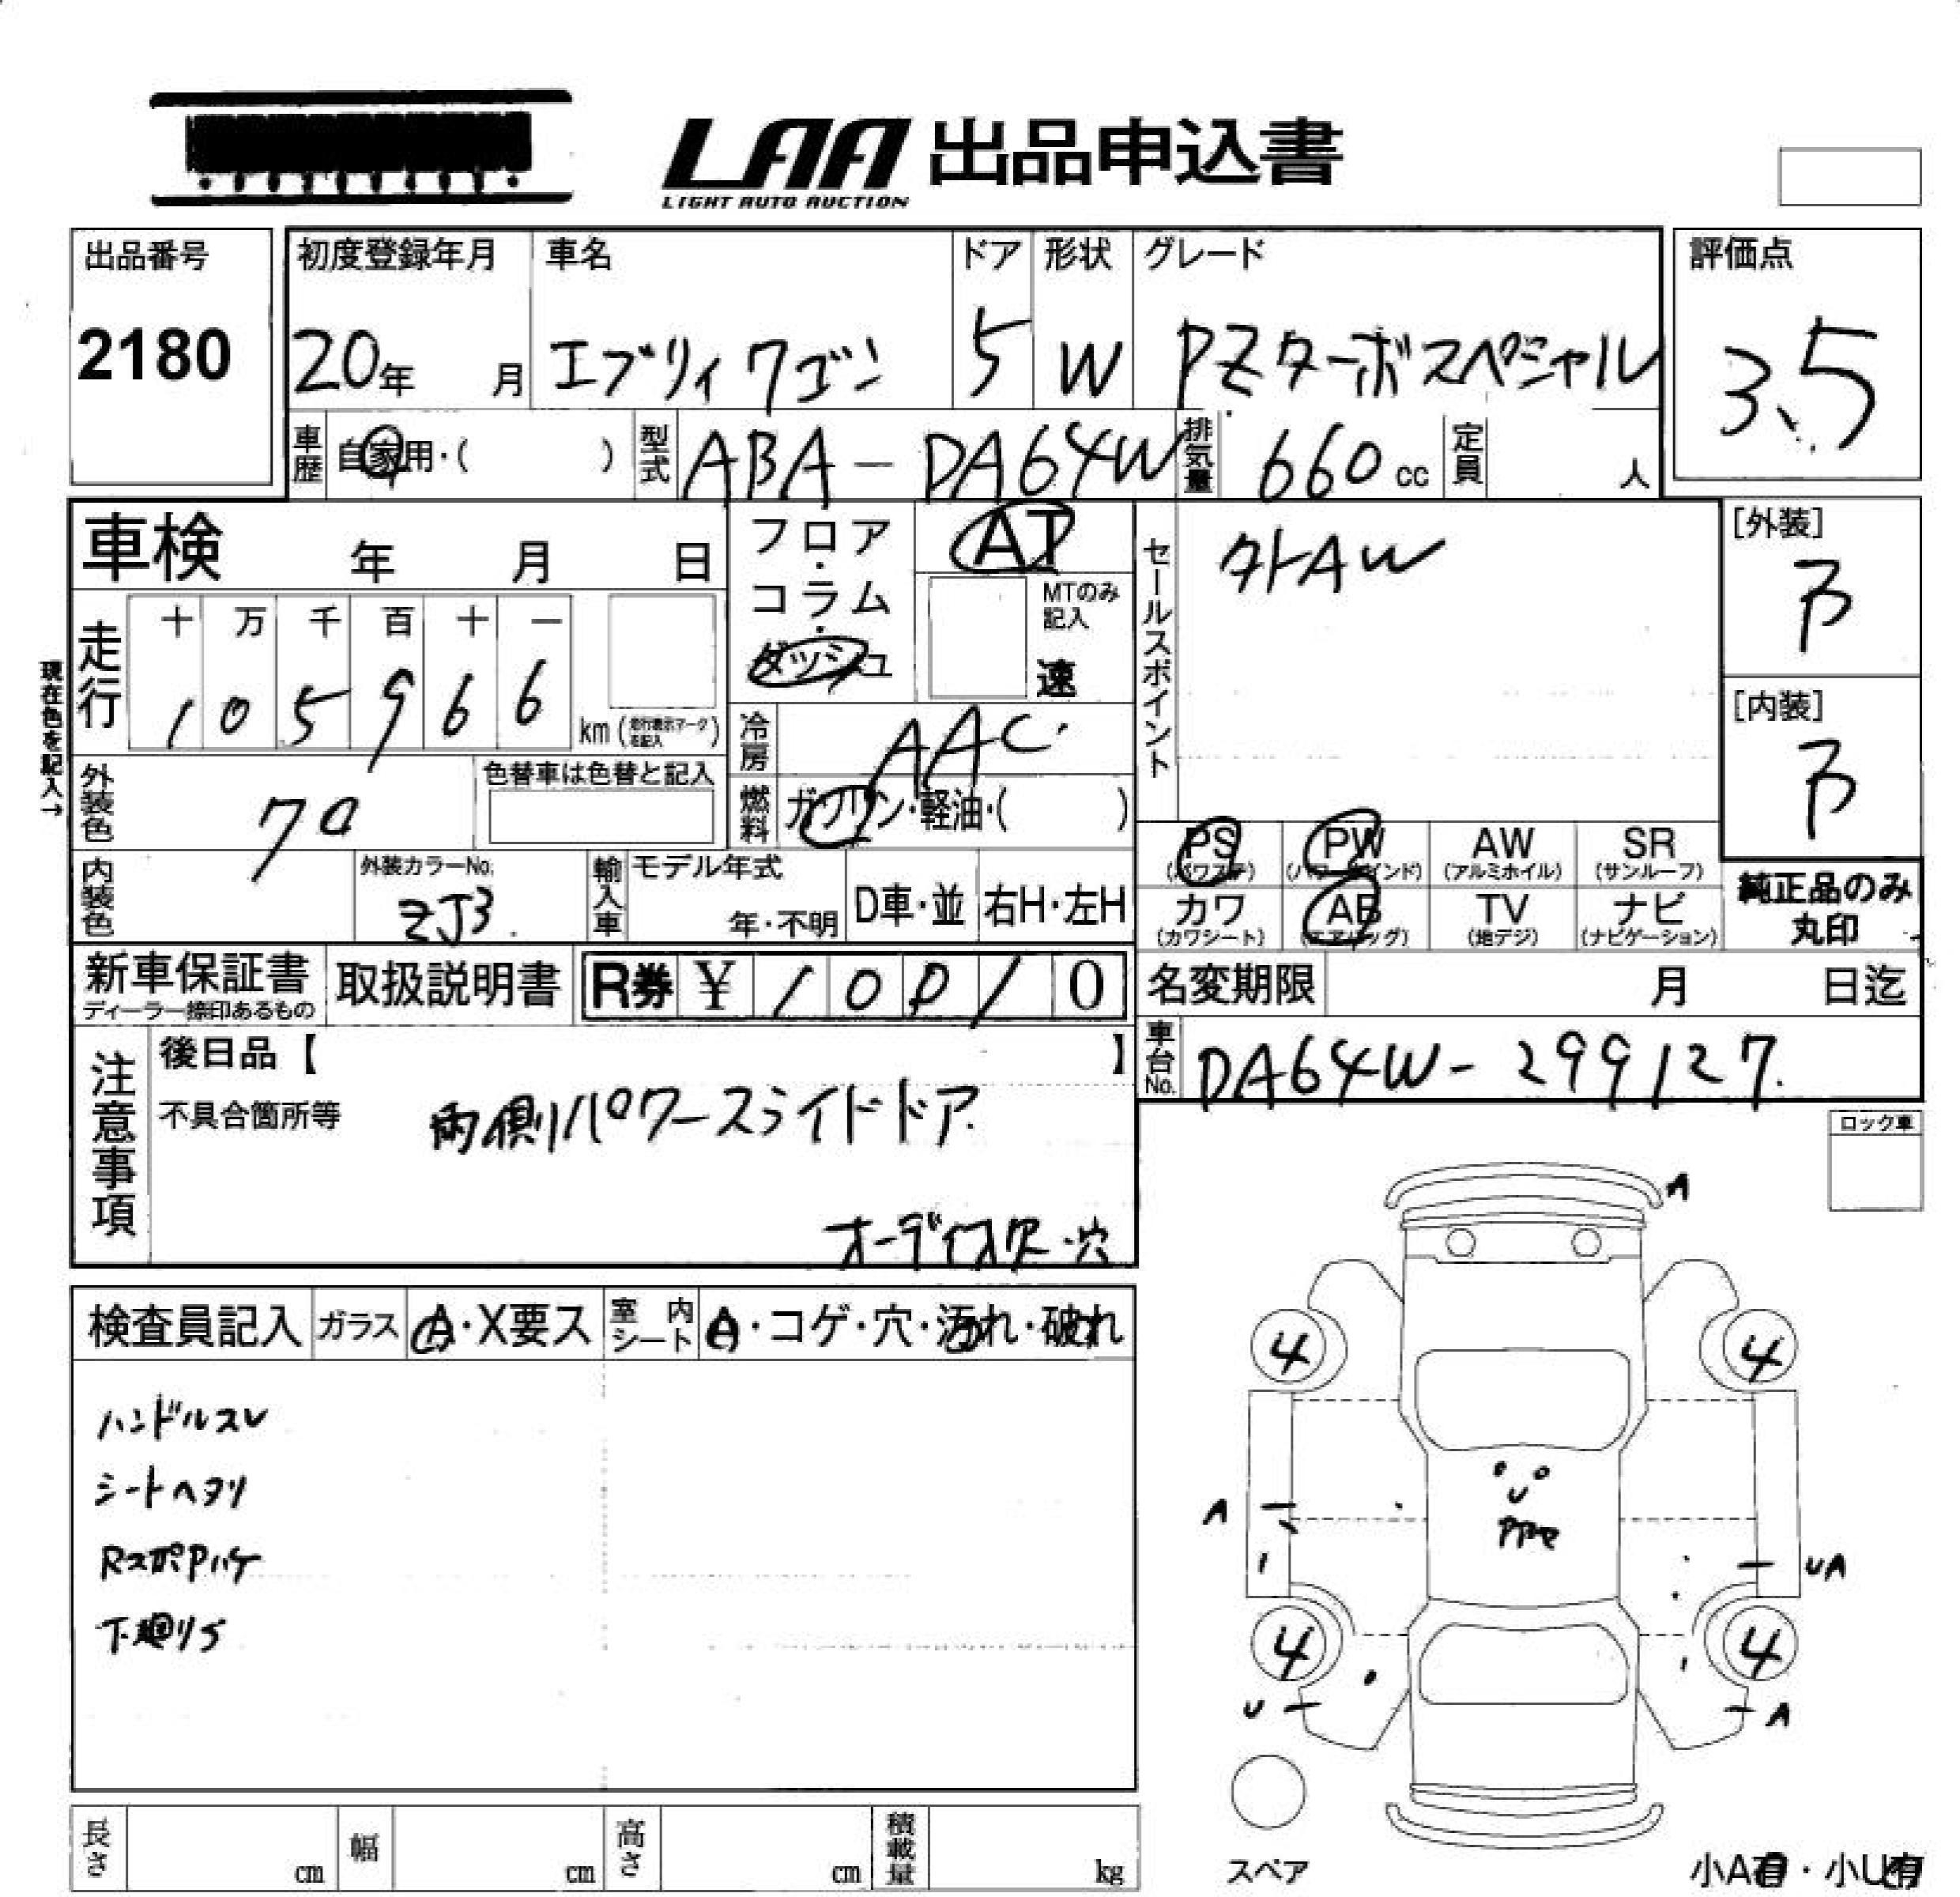 LAA 出品申込書
LIGHT AUTO AUCTION
出品番号
2180
初度登録年月
20年 月
車名
エブリィワゴン
ドア
5
形状
W
グレード
PZターボスペシャル
評価点
3.5
車歴 自家用・( )
型式 ABA-DA64W
排気量 660 cc
定員 人
車検 年 月 日
フロア・コラム・ダッシュ
AT
MTのみ記入
速
セールスポイント
外AW
[外装]
[内装]
現在色を記入→
走行
十 万 千 百 十 一
1 0 5 9 6 6
km (走行表示マークを記入)
冷房 AAC
外装色
色替車は色替と記入
燃料 ガソリン・軽油・( )
内装色
外装カラーNo.
ZJ3
輸入車
モデル年式
年・不明
D車・並
右H・左H
PS (パワステ)
PW (パワーウインド)
AW (アルミホイル)
SR (サンルーフ)
カワ (カワシート)
AB (エアバッグ)
TV (地デジ)
ナビ (ナビゲーション)
純正品のみ
丸印
新車保証書
ディーラー捺印あるもの
取扱説明書
R券 ¥ 0
名変期限 月 日迄
車台No. DA64W-299127
注意事項
後日品【 】
不具合箇所等
両側パワースライドドア
穴
ロック車
検査員記入
ガラス A・X要ス
室内シート A・コゲ・穴・汚れ・破れ
ハンドルスレ
シートヘタリ
下廻りS
A
4
4
U
A
UA
4
4
U
A
長さ cm
幅 cm
高さ cm
積載量 kg
スペア
小A有・小U有